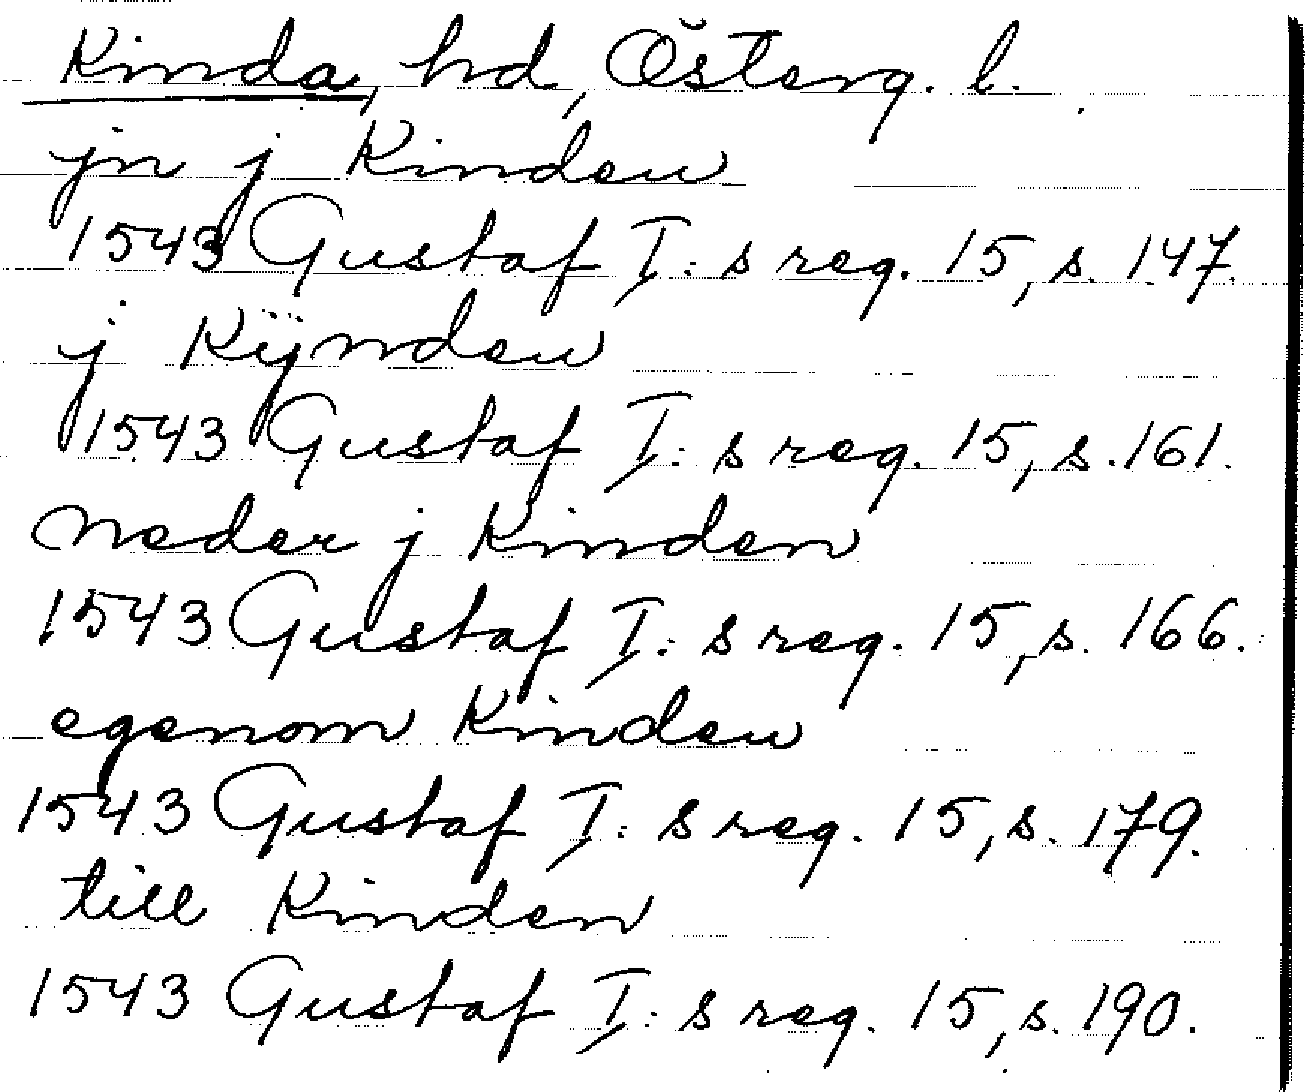 Kinda, hd, Österg. l.
jn j Kinden
1543 Gustaf I: s reg. 15, s. 147.
j Kÿnden
1543 Gustaf I: s reg. 15, s. 161.
neder j Kinden
1543 Gustaf I: s reg. 15, s. 166.
egenom Kinden
1543 Gustaf I: s reg. 15, s. 179.
till Kinden
1543 Gustaf I: s reg. 15, s. 190.